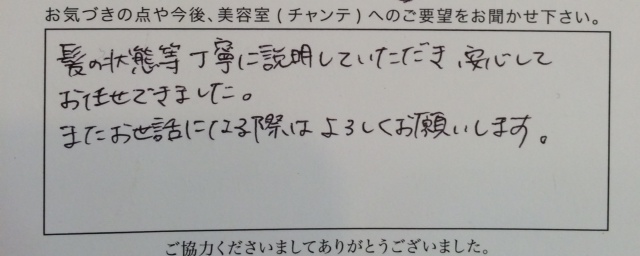 お気づきの点や今後、美容室(チャンテ)へのご要望をお聞かせ下さい。
髪の状態等丁寧に説明していただき、安心して
お任せできました。
またお世話になる際はよろしくお願いします。
ご協力くださいましてありがとうございました。